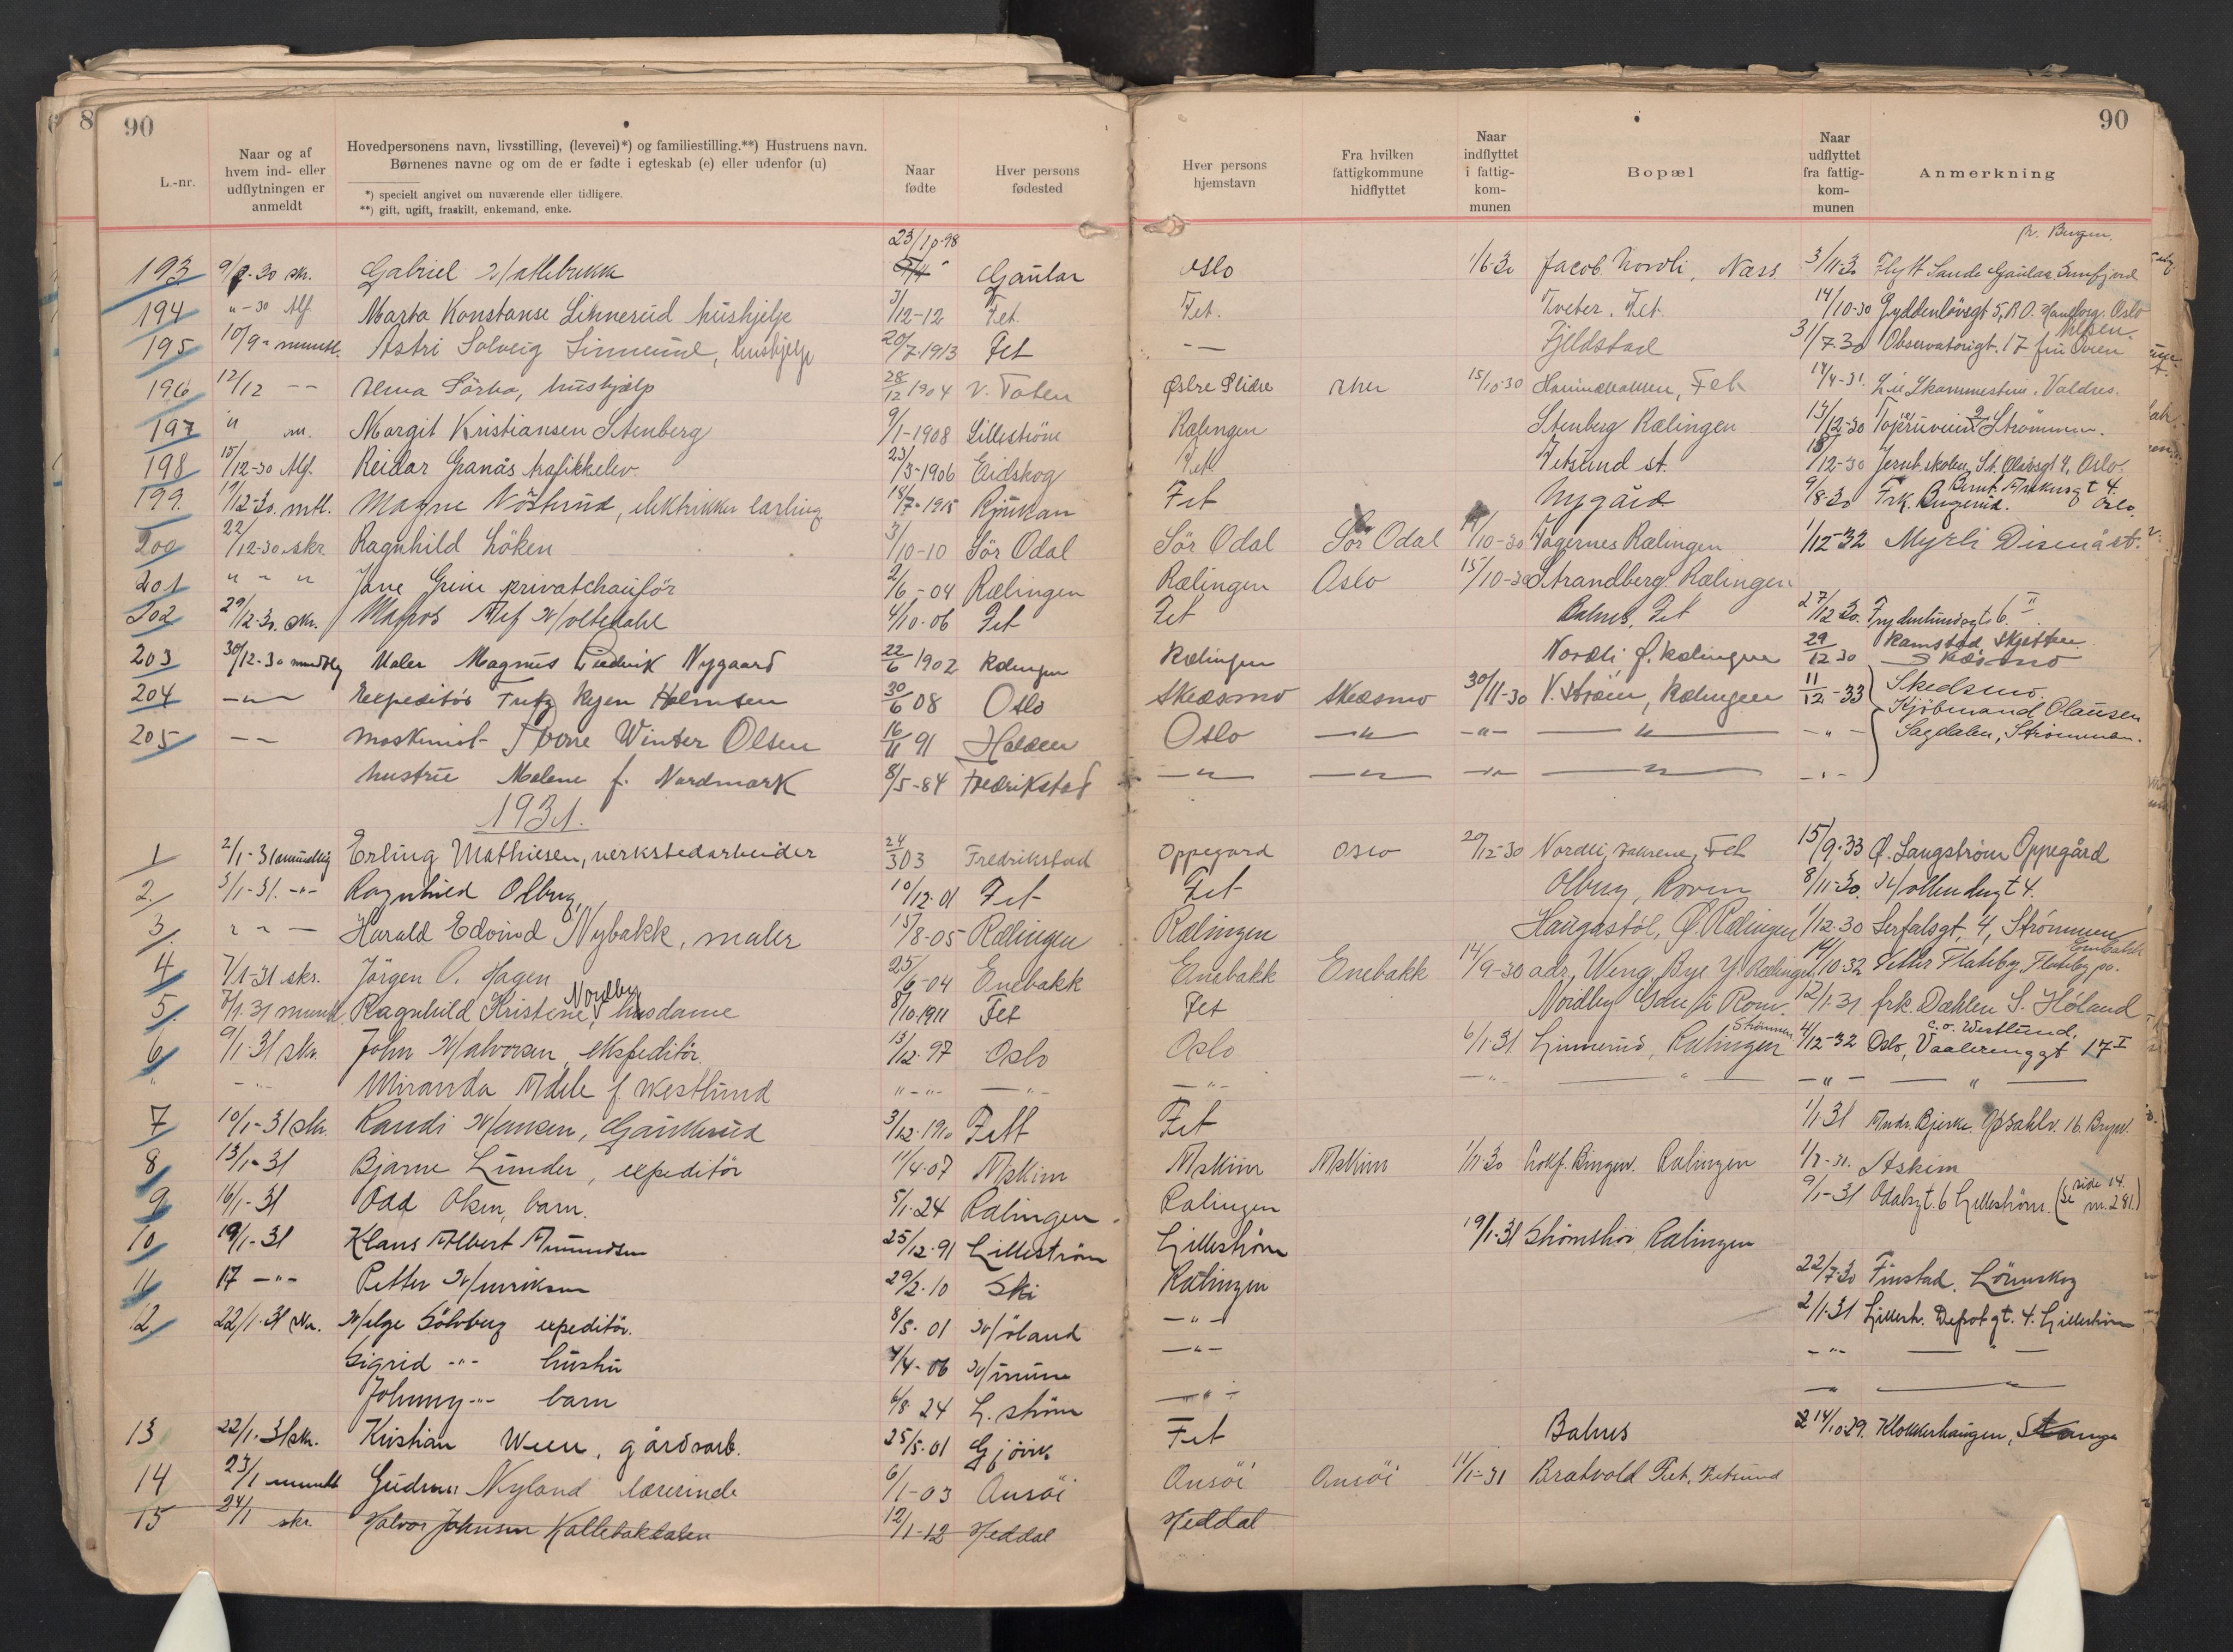 90
L.-nr.
Naar og af hvem ind- eller udflytningen er anmeldt
Hovedpersonens navn, livsstilling, (levevei)*) og familiestilling.**) Hustruens navn.
Børnenes navne og om de er fødte i egteskab (e) eller udenfor (u)
*) specielt angivet om nuværende eller tidligere.
**) gift, ugift, fraskilt, enkemand, enke.
Naar fødte
Hver persons fødested
Hver persons hjemstavn
Fra hvilken fattigkommune hidflyttet
Naar indflyttet i fattig-kom-munen
Bopæl
Naar udflyttet fra fattig-kom-munen
Anmerkning
90
23/10-98
193 skr. Gabriel Gaular Oslo 1/6-30 Jacob Nordli, Næss. 3/11-30 Sande Gaular Sunnfjord
194 Marta Konstanse Linnerud hushjelp 3/12-12 Fet. Fet. Tveter, Fet. 14/10-30 Oslo
195 10/9 Astri Solveig Linnerud, hushjelp 20/7-1913 Fet — — Fjeldstad 31/7-30 Observatorigt. 17
196 12/12 — — hushjælp 28/12 1904 V. Toten Østre Slidre 15/10-30 Fet 14/4-31. Valdres.
197 Margit Kristiansen Stenberg 9/1-1908 Lillestrøm Rælingen Stenberg Rælingen 13/12-30 Strømmen.
198 15/12-30 Reidar Granås trafikkelev. 23/3-1906 Eidskog Fet Fetsund st. /12-30 Jernb.skolen, St. Olavsgt 4, Oslo.
199. 19/12-30. mtl. Magne lærling 18/7-1915 Rjukan Fet Nygård 9/8-30 Frk. Oslo.
200 22/12-30 skr Ragnhild Löken 3/10-10 Sör Odal Sör Odal Sör Odal /10-30 Tagernes Rælingen 1/12-32 Myrli Disenå st.
201 " - " Jave Grini privatchauför 2/6-04 Rælingen Rælingen Oslo 15/10-30 Strandberg. Rælingen
202 29/12-30. skr. 4/10-06 Fet Fet Balnes, Fet 27/12 30. 6. II
203 30/12-30 Maler Magnus Ludvik Nygaard 22/6 1902 Rælingen Rælingen Nordli Ø. Rælingen 29/12 30 Ramstad, Skjetten Skedsmo
204 —"— Expeditör Holmsen 30/6 08 Oslo Skedsmo Skedsmo 30/11-30 V. Strøm, Rælingen 11/12-33 Skedsmo.
Kjøbmand Olausen
205 — — maskinist Winter Olsen 16/11 91 Halden Oslo —"— -"- —"— -"- Sagdalen, Strømmen.
hustru Malene f. Nordmark 8/5-84 Fredrikstad —"— —"— -"- —"— -"-
1931.
1 2/1-31 mundtlig Erling Mathiesen, verkstedarbeider 24/3 03 Fredrikstad Oppegård Oslo 20/12-30 Nordli, Fet 15/9-33 Ø. Langström Oppegård
2. 3/1-31. -"- Ragnhild Olberg, 10/12-01 Fet Fet Olberg, Roven 8/11-30.
3. " - — Harald Edvind Nybakk, maler 15/8-05 Rælingen Rælingen Haugastöl, Ø. Rælingen 1/12-30 4, Strømmen
4 7/1-31 skr. Jörgen O. Hagen 25/6-04 Enebakk Enebakk Enebakk 14/9-30 adr. Weng, Bye Y. Rælingen 14/10-32 Petter Flateby, Flateby po. Enebakk
5. 7/1-31 mundt. Ragnhild Kristine Nordby, husdame 8/10-1911 Fet Fet Nordby 12/1-31 frk. Dahlen S. Høland
6 9/1-31 skr. John Halvorsen, ekspeditör. 13/12-97 Oslo Oslo 6/1-31 Linnerud, Rælingen Strømmen 4/12-32 Oslo, c.o. Westlund. Vaalerenggt 17 I
" -"- Miranda Adele f. Westlund "-"- —"— —"— —"— —"— -"- —"—
7 10/1-31 skr. Randi Hansen, 3/12-1910 Fett Fet 1/1 31 Andr. Bjerke. Opsahlv. 16. Bryn.
8 13/1-31 Bjarne Lunder, expeditör 11/4-07 Askim Askim Askim 1/11-30 Rælingen Askim
9 16/1-31 Odd Olsen, barn. 5/1-24 Rælingen Rælingen 9/1-31 Odalsgt. 6 Lillestrøm. (Se side 14. nr. 281.)
10 19/1-31 Klaus Albert Amundsen 25/12-91 Lillestrøm Lillestrøm 19/1-31 Rælingen
11 17 -"- Petter Henriksen 29/2-10 Ski Rælingen 22/7-30 Finstad. Lörenskog
12. 22/1-31 skr. Helge Sölvberg expeditör. 8/5-01 Höland —"— 2/1-31 Lillestr. Depotgt. 4. Lillestrøm
Sigrid -"- hustru 4/4-06 —"— -"- —"—
Johnny -"- barn 6/8 24 L.ström —"—
13 22/1-31 skr. Kristian Ween, gårdsarb. 25/5-01 Gjövik Fet Balnes 14/10 29. Klokkerhaugen, Stange
14 23/1 mundt Gudrun Nyland lærerinde 6/1-03 Ansöi Ansöi Ansöi 11/1-31 Bratvold Fet, Fetsund
15 24/1 skr. Halvor Johnsen Kallebakdalen 12/1-12 Heddal Heddal